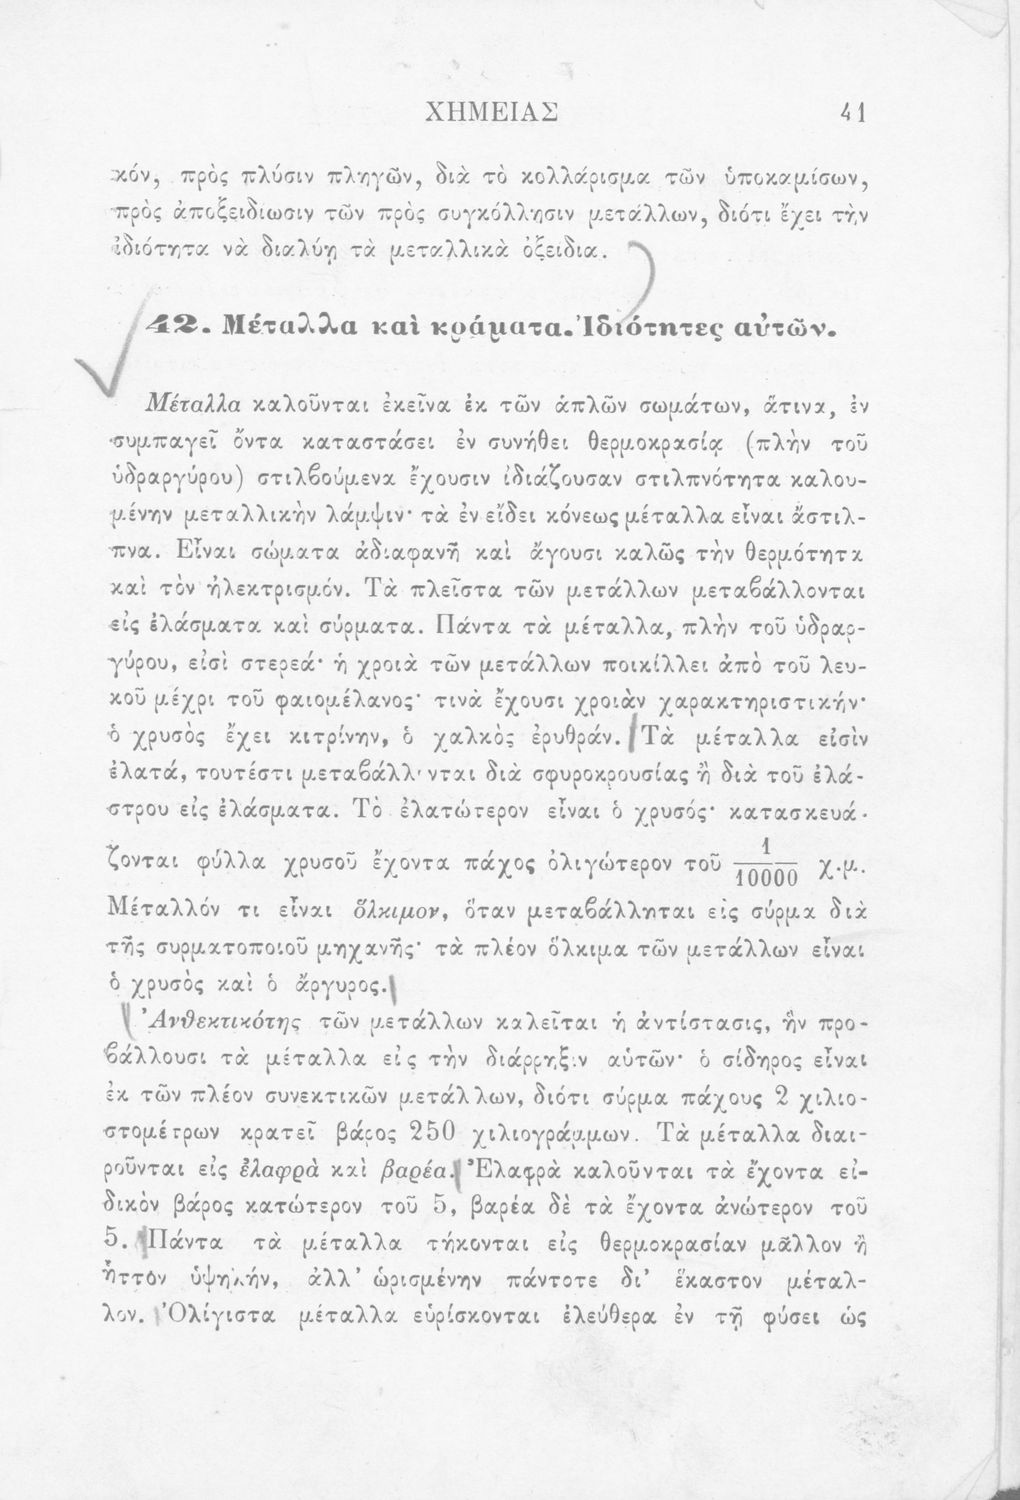 ΧΗΜΕΙΑΣ 41
κόν, πρὸς πλύσιν πληγῶν, διὰ τὸ κολλάρισμα τῶν ὑποκαμίσων,
πρὸς ἀποξειδίωσιν τῶν πρὸς συγκόλλησιν μετάλλων, διότι ἔχει τὴν
ἰδιότητα νὰ διαλύῃ τὰ μεταλλικὰ ὀξείδια.
42. Μέταλλα καὶ κράματα. Ἰδιότητες αὐτῶν.
Μέταλλα καλοῦνται ἐκεῖνα ἐκ τῶν ἁπλῶν σωμάτων, ἅτινα, ἐν
συμπαγεῖ ὄντα καταστάσει ἐν συνήθει θερμοκρασίᾳ (πλὴν τοῦ
ὑδραργύρου) στιλβούμενα ἔχουσιν ἰδιάζουσαν στιλπνότητα καλου-
μένην μεταλλικὴν λάμψιν· τὰ ἐν εἴδει κόνεως μέταλλα εἶναι ἄστιλ-
πνα. Εἶναι σώματα ἀδιαφανῆ καὶ ἄγουσι καλῶς τὴν θερμότητα
καὶ τὸν ἠλεκτρισμόν. Τὰ πλεῖστα τῶν μετάλλων μεταβάλλονται
εἰς ἐλάσματα καὶ σύρματα. Πάντα τὰ μέταλλα, πλὴν τοῦ ὑδραρ-
γύρου, εἰσὶ στερεά· ἡ χροιὰ τῶν μετάλλων ποικίλλει ἀπὸ τοῦ λευ-
κοῦ μέχρι τοῦ φαιομέλανος· τινὰ ἔχουσι χροιὰν χαρακτηριστικήν·
ὁ χρυσὸς ἔχει κιτρίνην, ὁ χαλκὸς ἐρυθράν. Τὰ μέταλλα εἰσὶν
ἐλατά, τουτέστι μεταβάλλονται διὰ σφυροκρουσίας ἢ διὰ τοῦ ἐλά-
στρου εἰς ἐλάσματα. Τὸ ἐλατώτερον εἶναι ὁ χρυσός· κατασκευά-
ζονται φύλλα χρυσοῦ ἔχοντα πάχος ὀλιγώτερον τοῦ 1/10000 χ.μ.
Μέταλλόν τι εἶναι ὅλκιμον, ὅταν μεταβάλληται εἰς σύρμα διὰ
τῆς συρματοποιοῦ μηχανῆς· τὰ πλέον ὅλκιμα τῶν μετάλλων εἶναι
ὁ χρυσὸς καὶ ὁ ἄργυρος.
Ἀνθεκτικότης τῶν μετάλλων καλεῖται ἡ ἀντίστασις, ἣν προ-
βάλλουσι τὰ μέταλλα εἰς τὴν διάρρηξιν αὐτῶν· ὁ σίδηρος εἶναι
ἐκ τῶν πλέον συνεκτικῶν μετάλλων, διότι σύρμα πάχους 2 χιλιο-
στομέτρων κρατεῖ βάρος 250 χιλιογράμμων. Τὰ μέταλλα διαι-
ροῦνται εἰς ἐλαφρὰ καὶ βαρέα. Ἐλαφρὰ καλοῦνται τὰ ἔχοντα εἰ-
δικὸν βάρος κατώτερον τοῦ 5, βαρέα δὲ τὰ ἔχοντα ἀνώτερον τοῦ
5. Πάντα τὰ μέταλλα τήκονται εἰς θερμοκρασίαν μᾶλλον ἢ
ἧττον ὑψηλήν, ἀλλ' ὡρισμένην πάντοτε δι' ἕκαστον μέταλ-
λον. Ὀλίγιστα μέταλλα εὑρίσκονται ἐλεύθερα ἐν τῇ φύσει ὡς